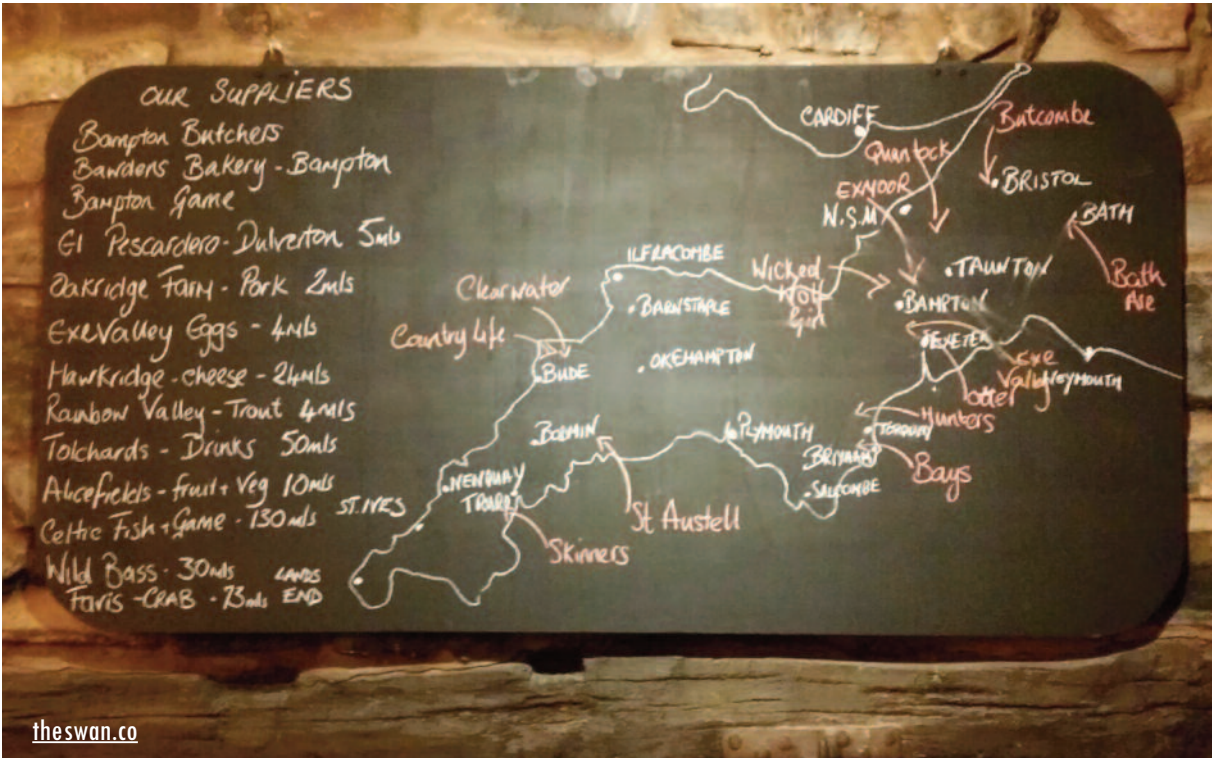 OUR SUPPLIERS
Bampton Butchers
Bawdens Bakery - Bampton
Bampton Game
El Pescardero - Dulverton 5mls
Oakridge Farm - Pork 2mls
Exe Valley Eggs - 4mls
Hawkridge - cheese - 24mls
Rainbow Valley - Trout 4mls
Tolchards - Drinks 50mls
Alicefields - fruit + Veg 10mls
Celtic Fish + Game - 130mls
Wild Bass - 30mls
Favis - CRAB - 23mls
CARDIFF
Butcombe
Quantock
EXMOOR
BRISTOL
W.S.M
BATH
ILFRACOMBE
Wicked
Wolf
Gin
TAUNTON
Bath
Ale
Clearwater
BARNSTAPLE
BAMPTON
Country life
EXETER
OKEHAMPTON
Exe
Valley
BUDE
WEYMOUTH
otter
Hunters
BODMIN
PLYMOUTH
TORQUAY
BRIXHAM
Bays
NEWQUAY
SALCOMBE
TRURO
ST. IVES
St Austell
Skinners
LANDS
END
theswan.co